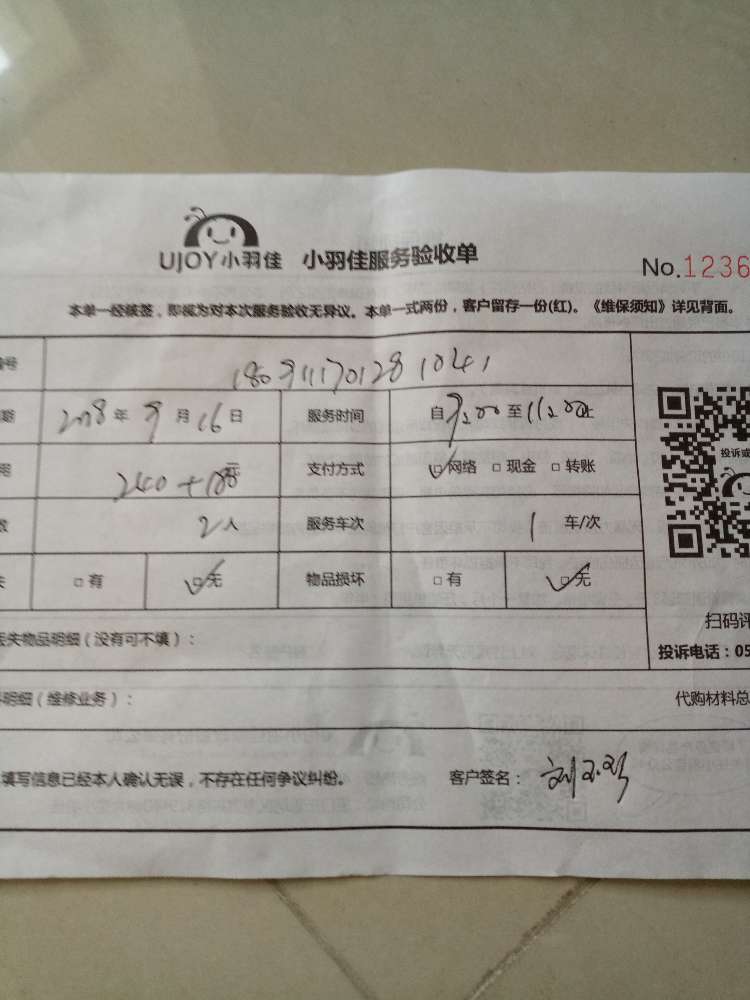 UJOY小羽佳 小羽佳服务验收单
No.1236
本单一经核签，即视为对本次服务验收无异议。本单一式两份，客户留存一份(红)。《维保须知》详见背面。
号 180911170128 1041
期 2018年9月16日 服务时间 自9:00至11:00止
240+ 元 支付方式 网络 现金 转账
数 2人 服务车次 1 车/次
失 有 无 物品损坏 有 无
投诉或
扫码评
丢失物品明细（没有可不填）：
投诉电话：05
明细（维修业务）：
代购材料总
填写信息已经本人确认无误，不存在任何争议纠纷。 客户签名：刘